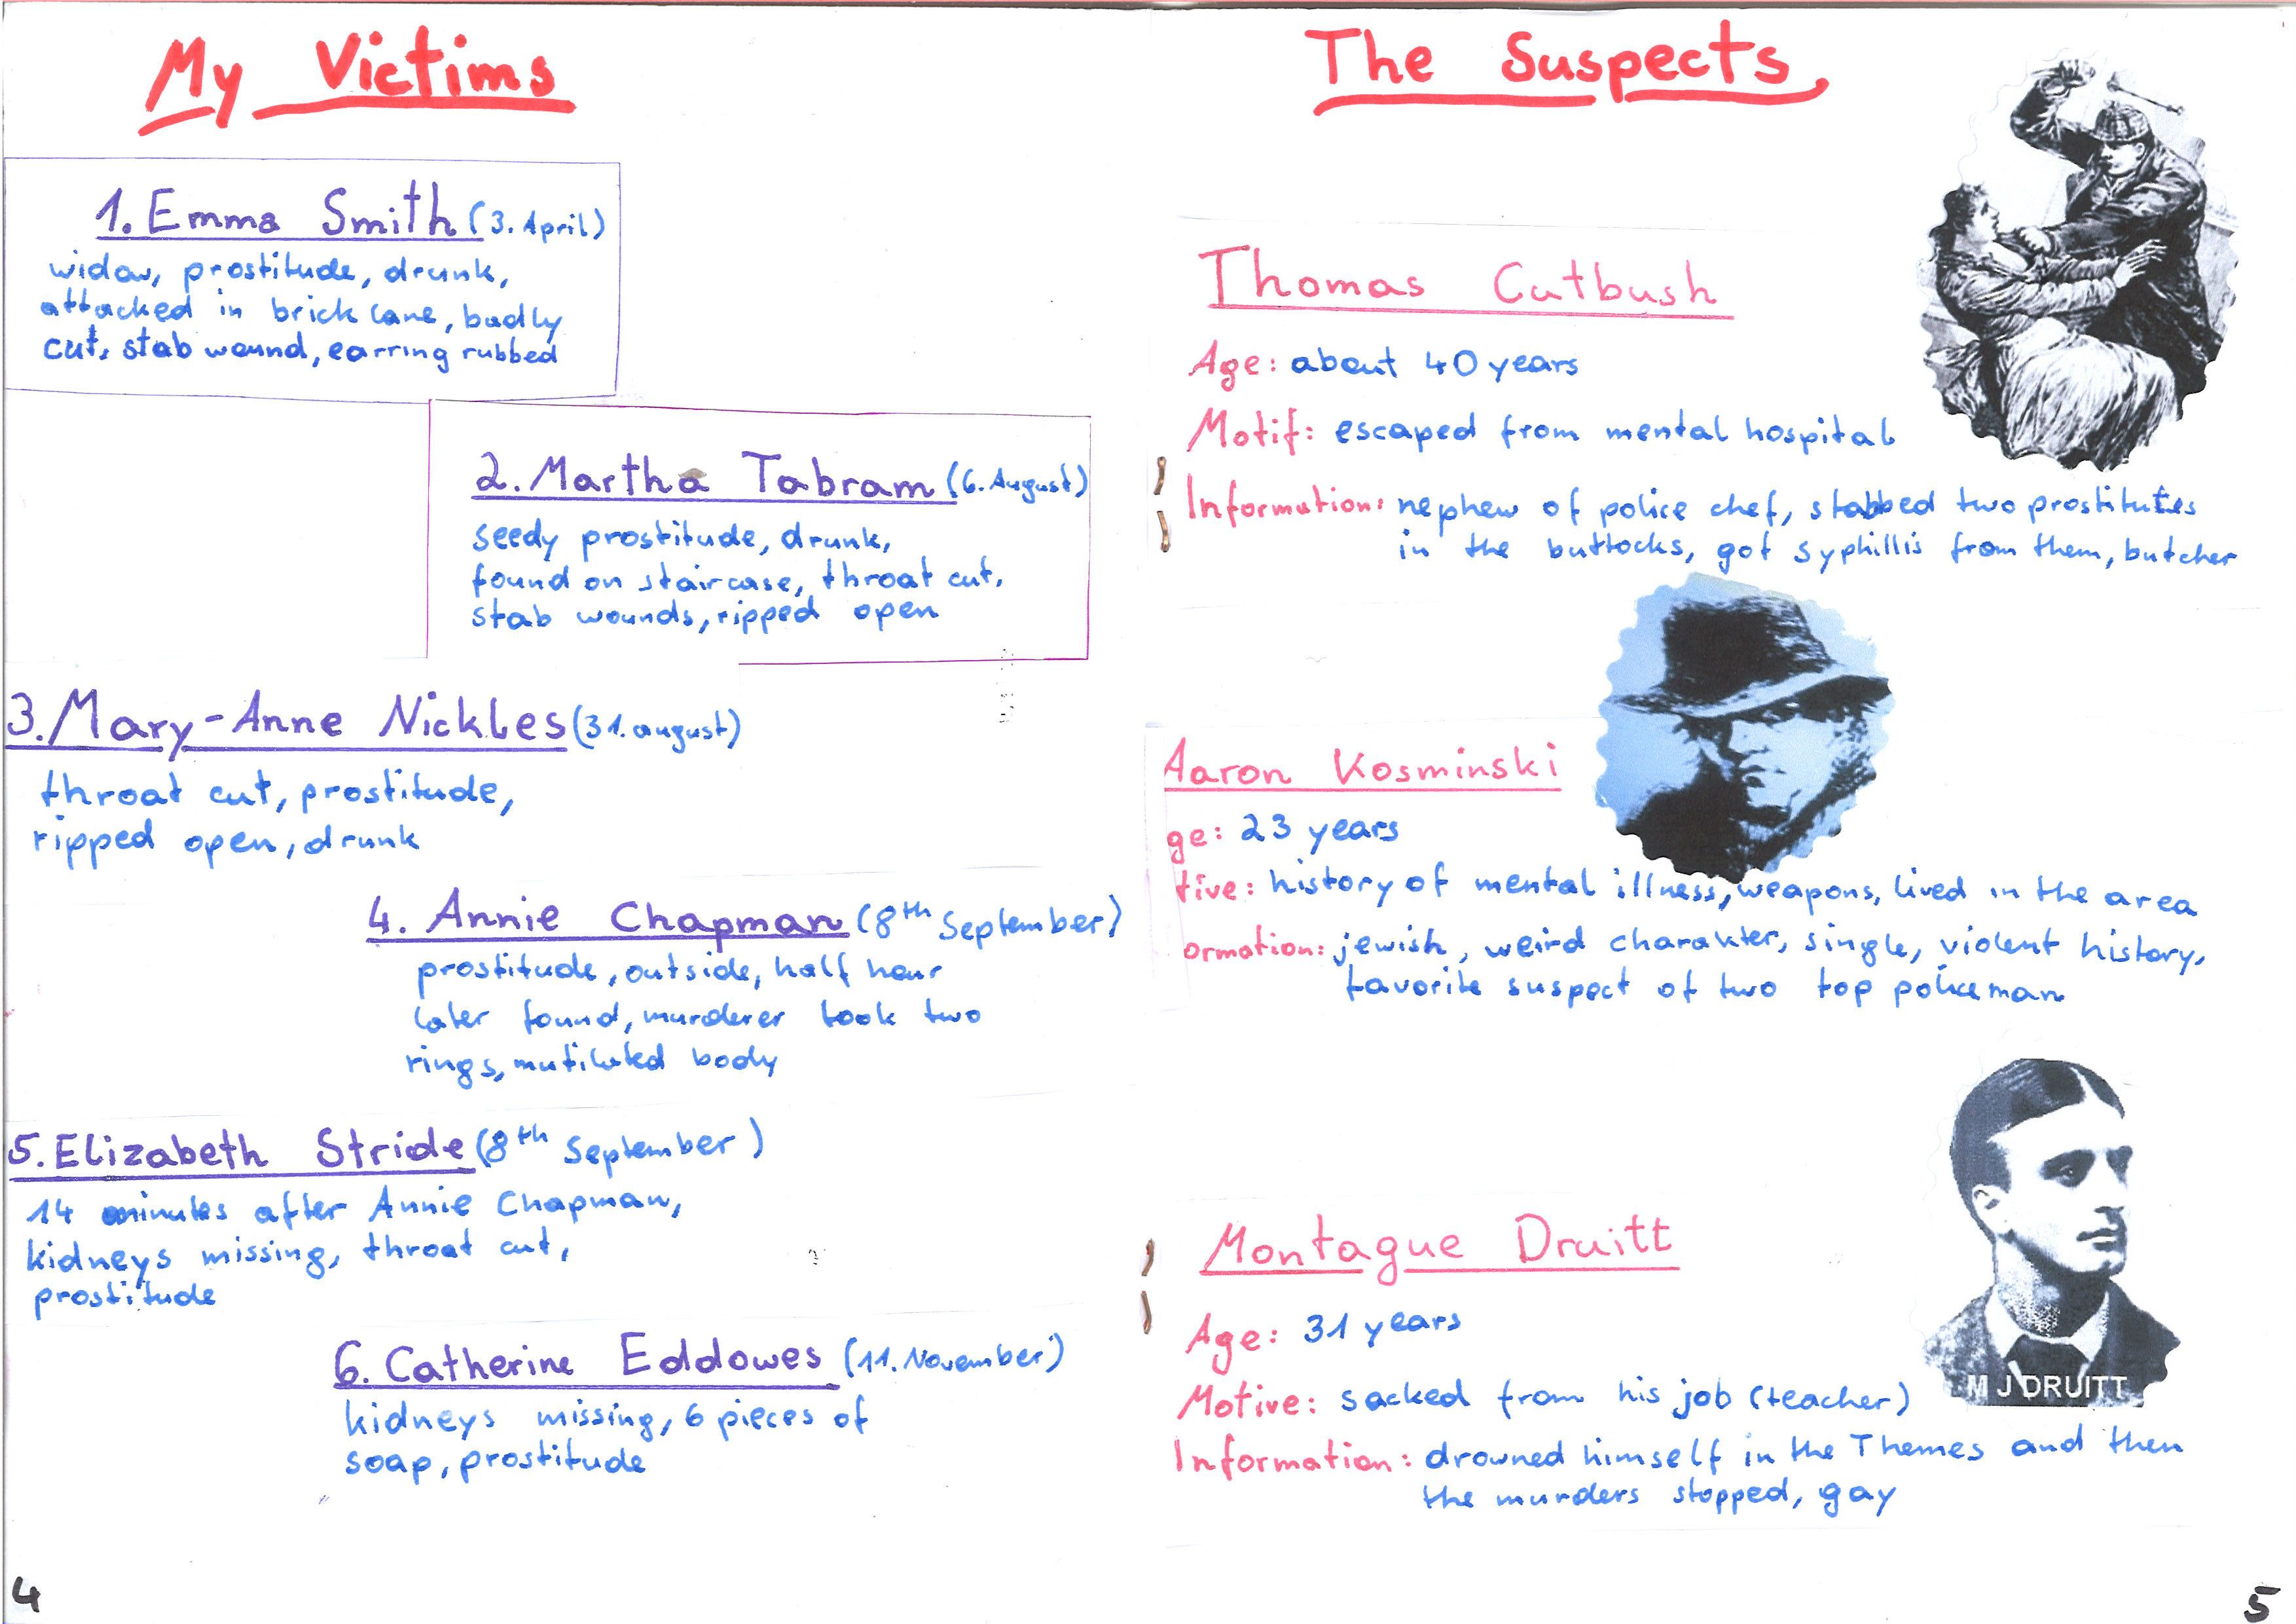 My Victims
1. Emma Smith (3. April)
widow, prostitude, drunk,
attacked in brick lane, badly
cut, stab wound, earring rubbed
2. Martha Tabram (6. August)
seedy prostitude, drunk,
found on staircase, throat cut,
stab wounds, ripped open
3. Mary-Anne Nickles (31. august)
throat cut, prostitude,
ripped open, drunk
4. Annie Chapman (8th September)
prostitude, outside, half hour
later found, murderer took two
rings, mutilated body
5. Elizabeth Stride (8th September)
14 minutes after Annie Chapman,
kidneys missing, throat cut,
prostitude
6. Catherine Eddowes (11. November)
kidneys missing, 6 pieces of
soap, prostitude
4
The Suspects
Thomas Cutbush
Age: about 40 years
Motif: escaped from mental hospital
Information: nephew of police chef, stabbed two prostitutes
in the buttocks, got syphillis from them, butcher
Aaron Kosminski
ge: 23 years
tive: history of mental illness, weapons, lived in the area
ormation: jewish, weird charakter, single, violent history,
favorite suspect of two top policeman
Montague Druitt
M J DRUITT
Age: 31 years
Motive: sacked from his job (teacher)
Information: drowned himself in the Themes and then
the murders stopped, gay
5